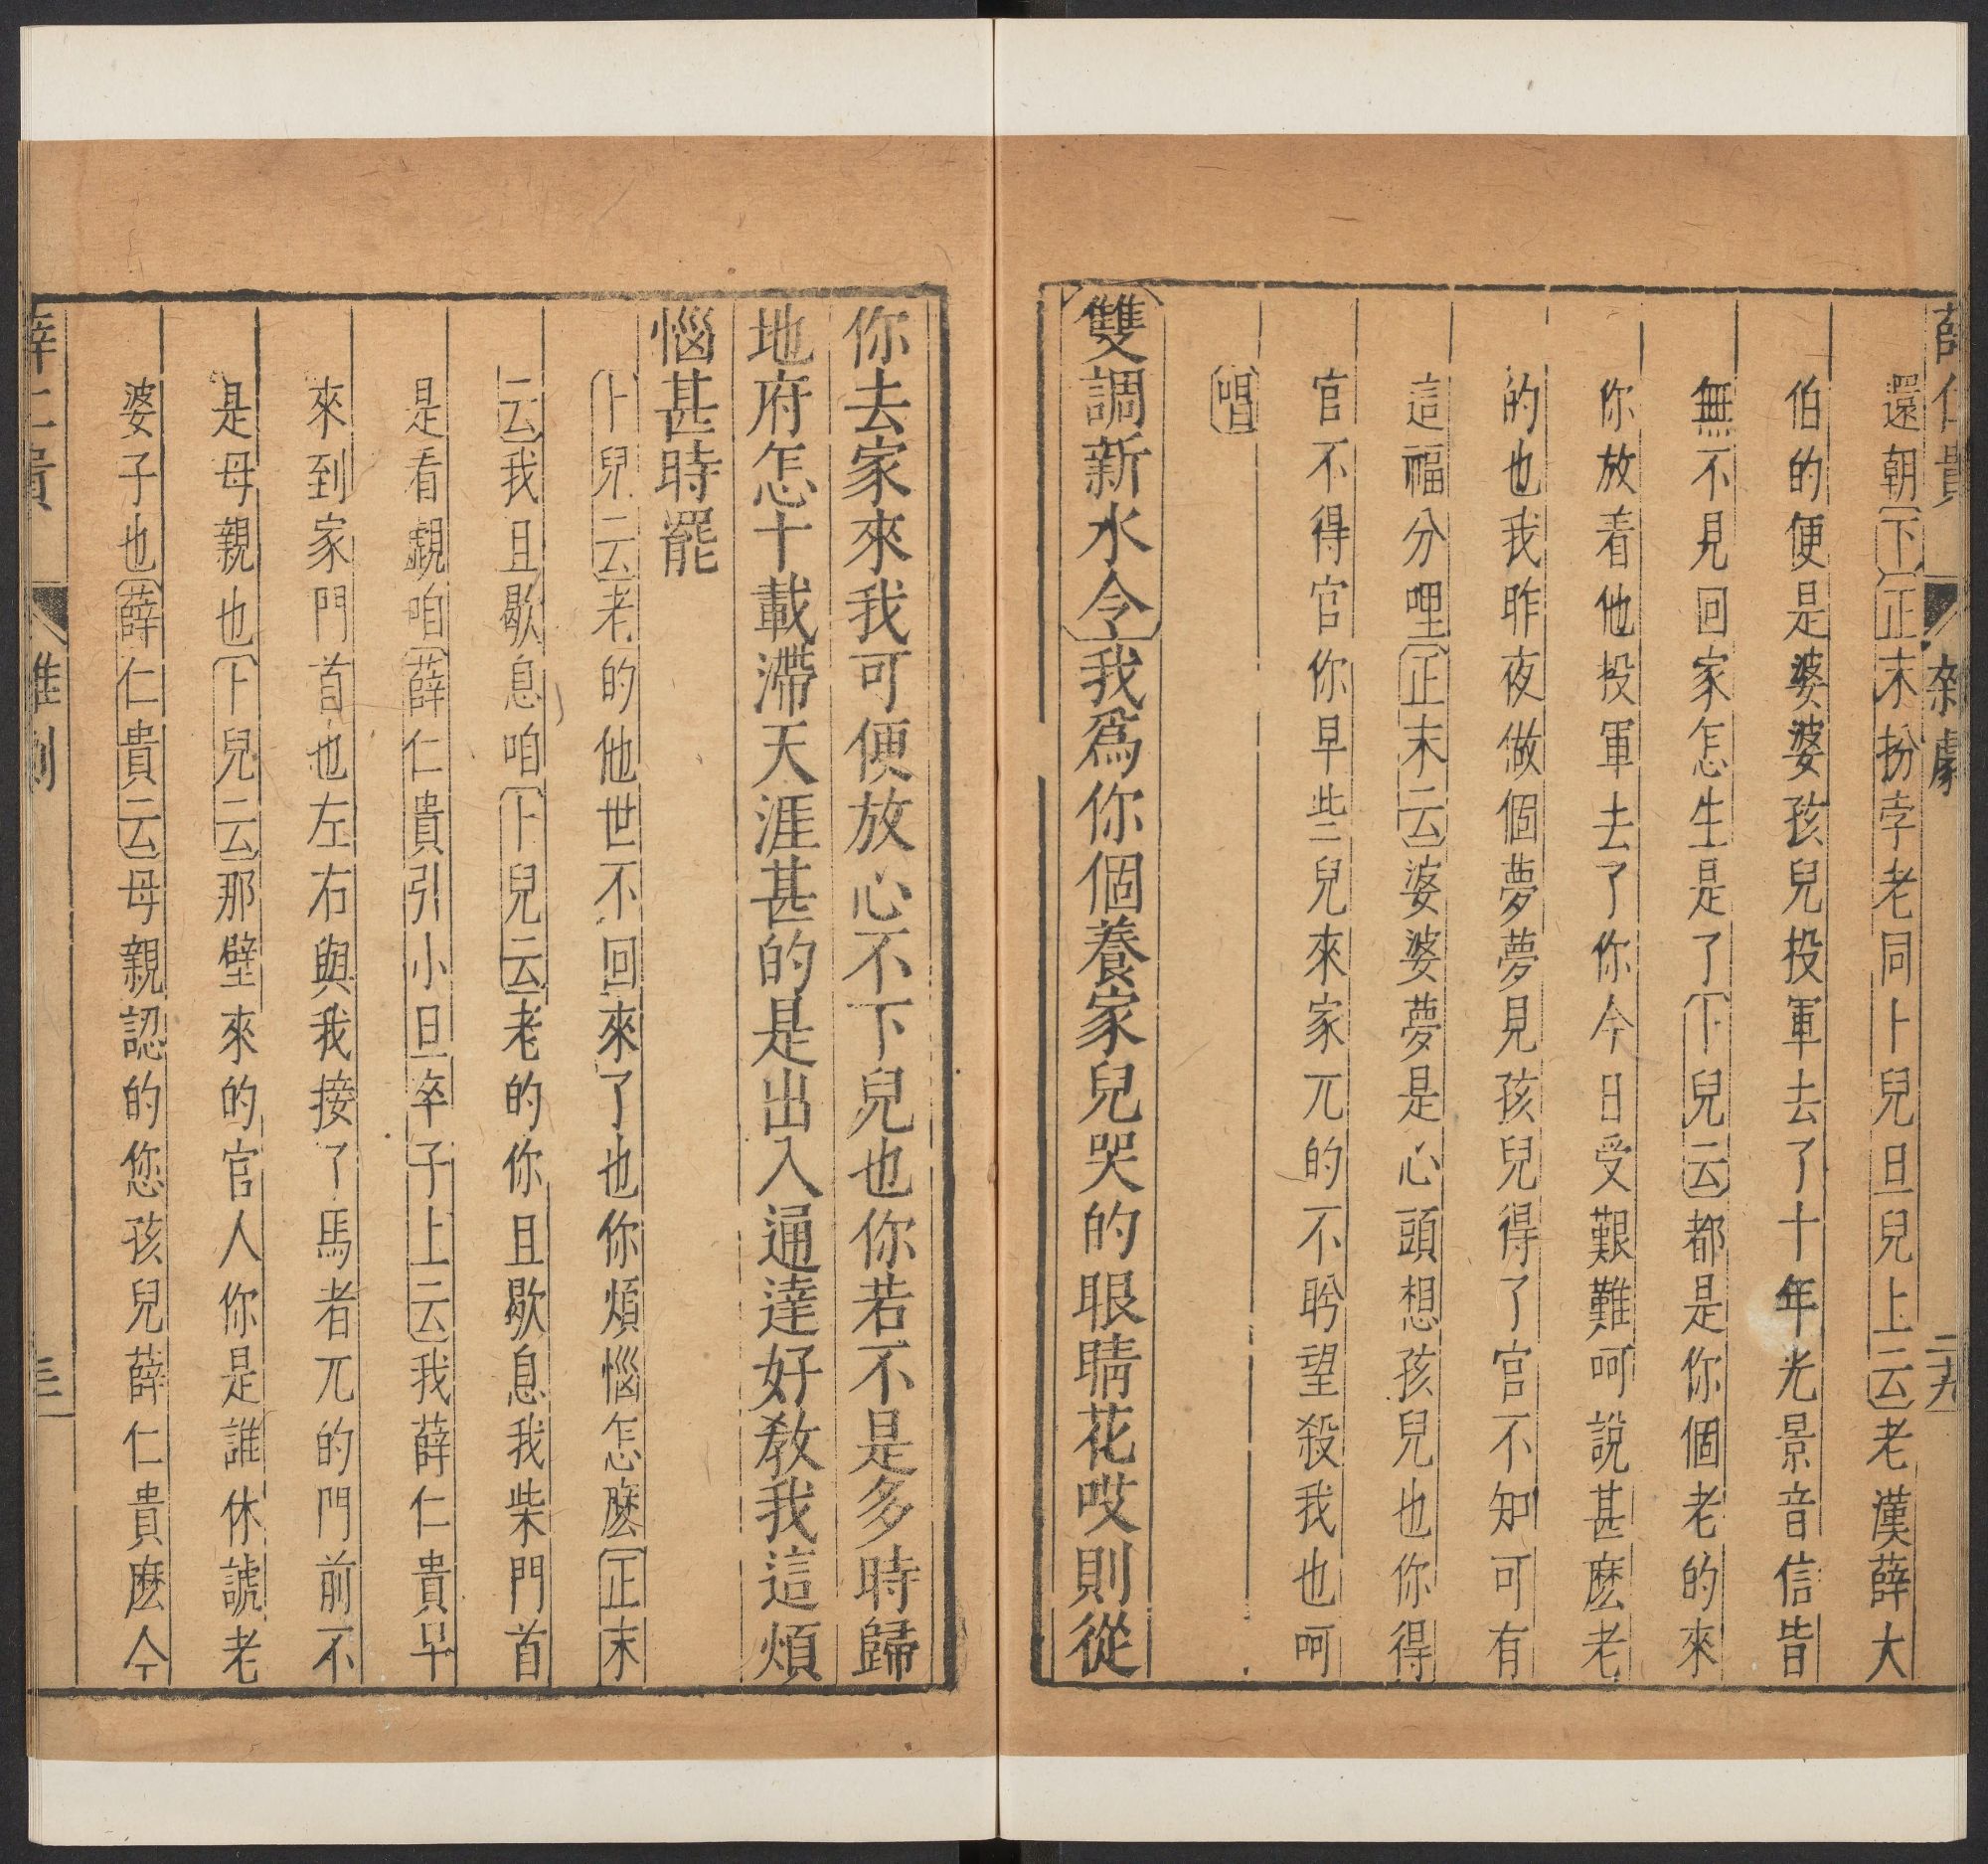 薛仁貴 雜劇 二十九
還朝下正末扮孛老同卜兒旦兒上云老漢薛大
伯的便是婆婆孩兒投軍去了十年光景音信皆
無不見回家怎生是了卜兒云都是你個老的來
你放着他投軍去了你今日受艱難呵說甚麽老
的也我昨夜做個夢夢見孩兒得了官不知可有
這福分哩正末云婆婆夢是心頭想孩兒也你得
官不得官你早些兒來家兀的不盻望殺我也呵
唱
雙調新水令我爲你個養家兒哭的眼睛花哎則從
你去家來我可便放心不下兒也你若不是多時歸
地府怎十載滯天涯甚的是出入通達好教我這煩
惱甚時罷
卜兒云老的他世不回來了也你煩惱怎麽正末
云我且歇息咱卜兒云老的你且歇息我柴門首
是看覷咱薛仁貴引小旦卒子上云我薛仁貴早
來到家門首也左右與我接了馬者兀的門前不
是母親也卜兒云那壁來的官人你是誰休諕老
婆子也薛仁貴云母親認的您孩兒薛仁貴麽今
薛仁貴 雜劇 三